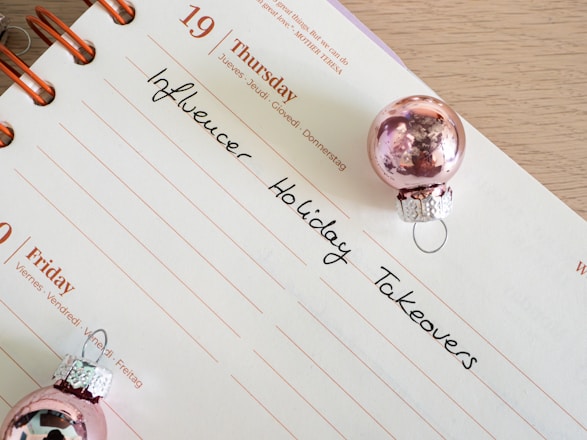 great things. But we can do
great love." - MOTHER TERESA
19
Thursday
Jueves · Jeudi · Giovedì · Donnerstag
Influencer Holiday Takeovers
Friday
Viernes · Vendredi · Venerdì · Freitag